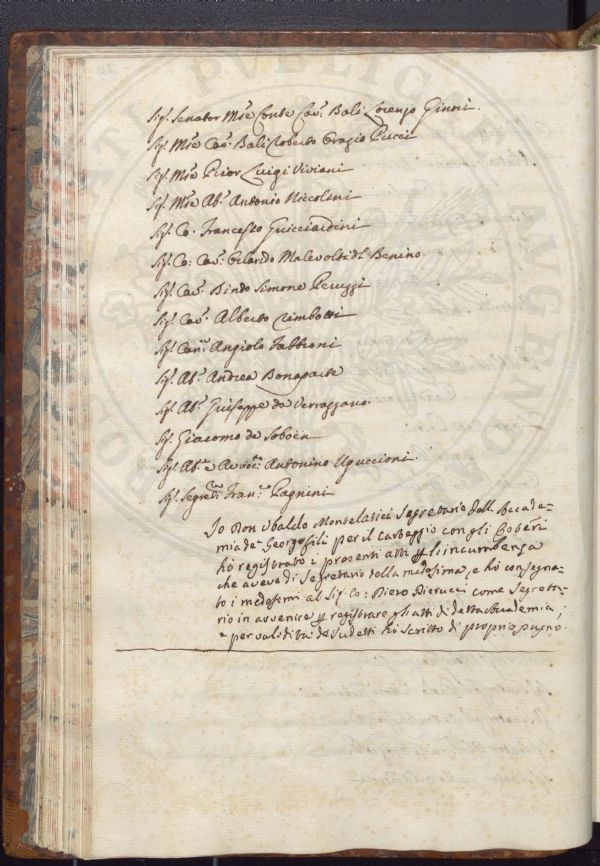 Sig.r Senator M.se Conte Cav.r Balì Lorenzo Ginori.
Sig.r M.se Cav.r Balì Roberto Orazio Pucci
Sig.r M.se Prior Luigi Viviani
Sig.r M.se Ab.e Antonio Niccolini
Sig.r Co. Francesco Guicciardini
Sig.r Co: Cav.r Orlando Malevolti del Benino
Sig.r Cav.r Bindo Simone Peruzzi
Sig.r Cav.r Alberto Rimbotti
Sig.r Can.co Angiolo Fabbroni
Sig.r Ab.e Andrea Bonaparte
Sig.r Ab.e Guiseppe da Verrazzano.
Sig.r Giacomo de Soboen
Sig.r Ab.e e Avvoc.to Antonino Uguccioni
Sig.r Segret.rio Fran.co Pagnini
Io Don Ubaldo Montelatici Segretario dell Accade-
mia de Georgofili per il carteggio con gli Esteri
ho registrato i presenti atti p l'incumbenza
che aveva di Segretario della medesima, e ho consegna-
to i medesimi al Sig.r Co: Piero Pierucci come Segreta-
rio in avvenire p registrare gli atti di detta Accademia;
e per validità de sudetti ho scritto di proprio pugno.